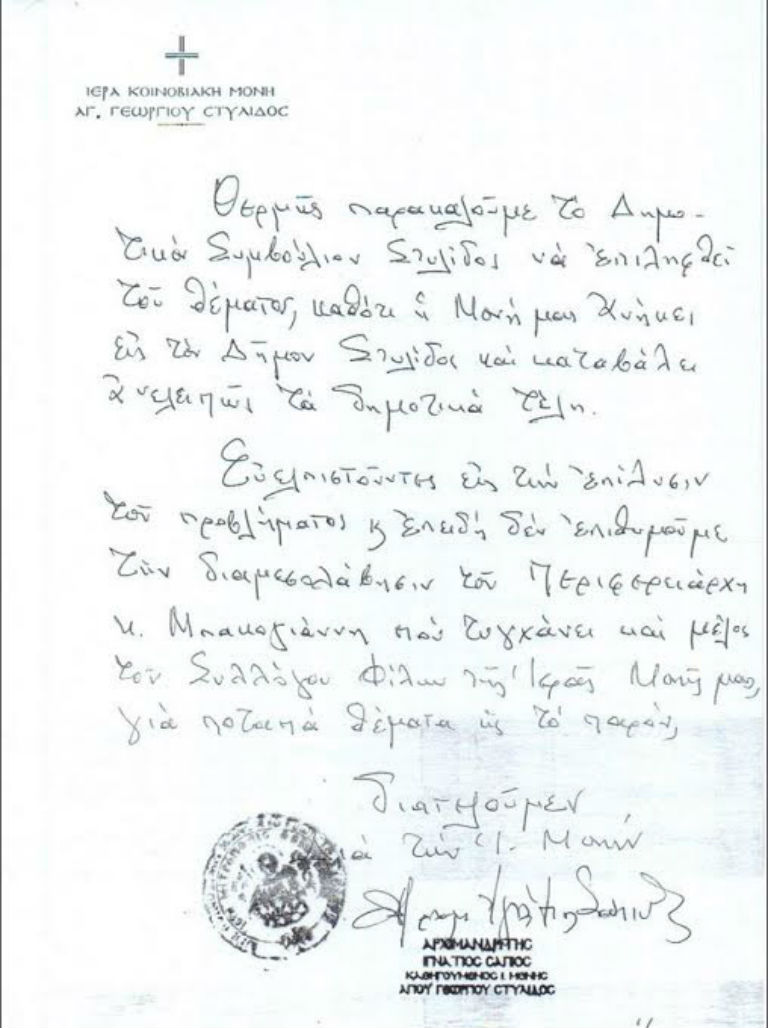 ΙΕΡΑ ΚΟΙΝΟΒΙΑΚΗ ΜΟΝΗ
ΑΓ. ΓΕΩΡΓΙΟΥ ΣΤΥΛΙΔΟΣ
Θερμῶς παρακαλοῦμε τὸ Δημο-
τικὸ Συμβούλιον Στυλίδος νὰ ἐπιληφθεῖ
τοῦ θέματος, καθότι ἡ Μονή μας ἀνήκει
εἰς τὸν Δῆμον Στυλίδος καὶ καταβάλει
ἀνελειπῶς τὰ δημοτικὰ τέλη.
Εὐελπιστοῦντες εἰς τὴν ἐπίλυσιν
τοῦ προβλήματος κ ἐπειδὴ δὲν ἐπιθυμοῦμε
τὴν διαμεσολάβησιν τοῦ Περιφερειάρχη
κ. Μπακογιάννη ποὺ τυγχάνει καὶ μέλος
τοῦ Συλλόγου Φίλων τῆς Ἱερᾶς Μονῆς μας,
γιὰ ποταπὰ θέματα ὡς τὸ παρόν,
Διατελοῦμεν
τὴν Ἱ. Μονὴν
ΑΡΧΙΜΑΝΔΡΙΤΗΣ
ΙΓΝΑΤΙΟΣ ΣΑΠΙΟΣ
ΚΑΘΗΓΟΥΜΕΝΟΣ Ι. ΜΟΝΗΣ
ΑΓΙΟΥ ΓΕΩΡΓΙΟΥ ΣΤΥΛΙΔΟΣ